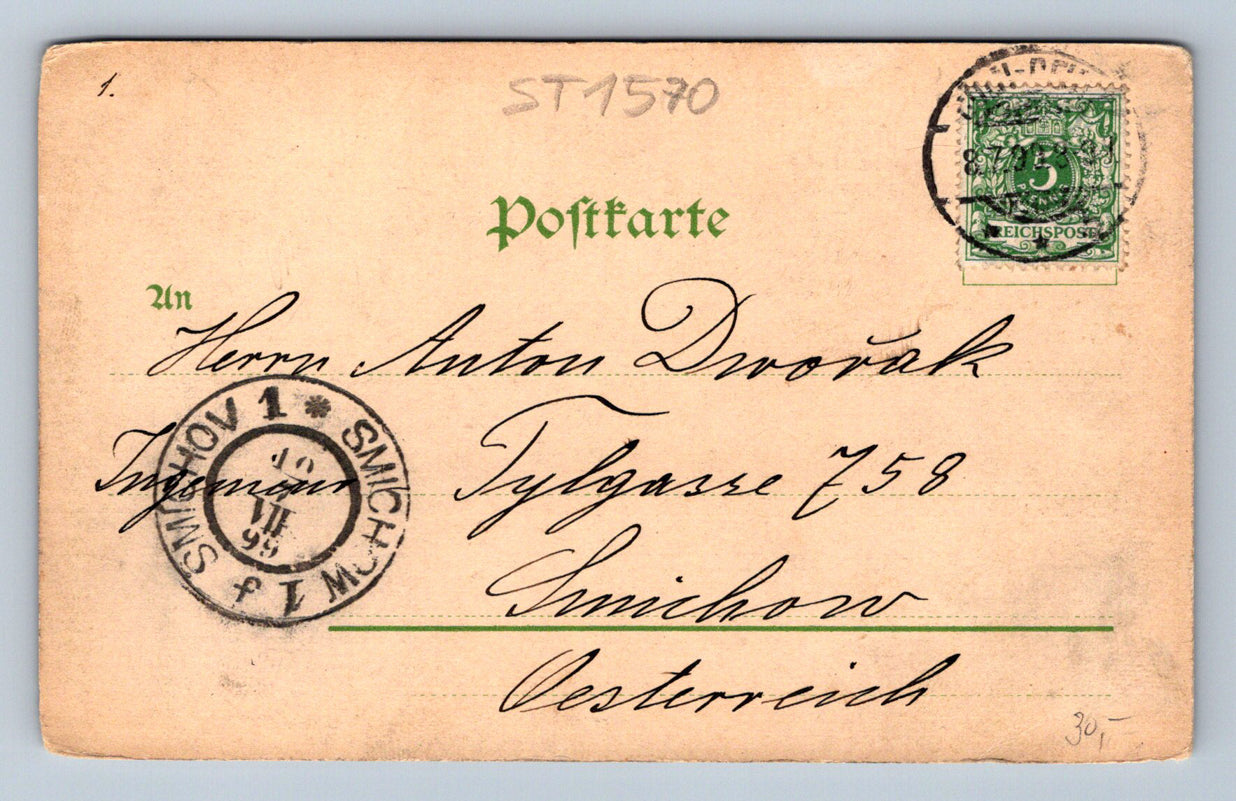 1.
ST1570
Postkarte
8.7.99 8-9
5
REICHSPOST
An
Herrn Anton Dwořák
SMICHOV 1 * SMICHOW 1 f
10
VII
99
Ingenieur Tylgasse 758
Smichow
Oesterreich
30,-